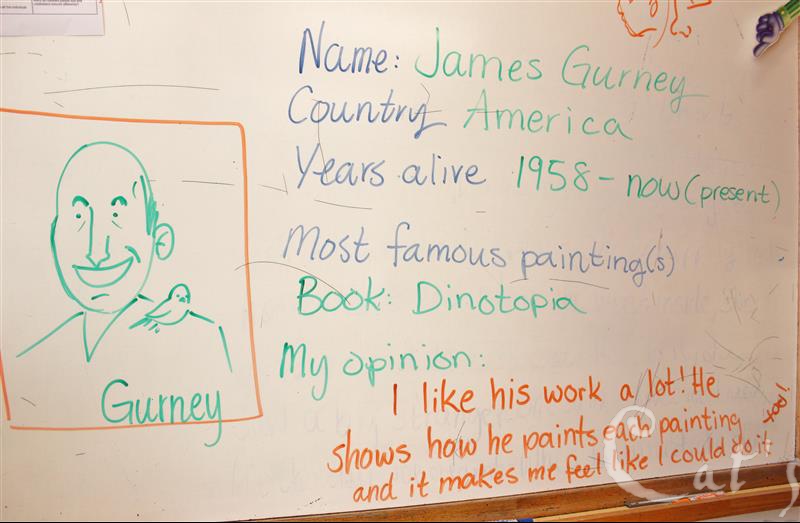 Name: James Gurney
Country America
Years alive 1958 - now (present)
Most famous painting(s)
Book: Dinotopia
My opinion:
I like his work a lot! He
shows how he paints each painting
and it makes me feel like I could do it
too!
Gurney